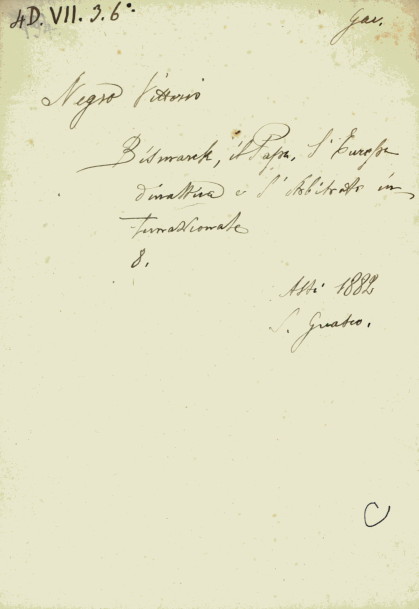 4D. VII. 3. 6°.
Gae.
Negro Vittorio
Bismarck, il Papa, l'Europa
dinastica e l'Arbitrato in
ternazionale
8.
Asti 1882
S.
C